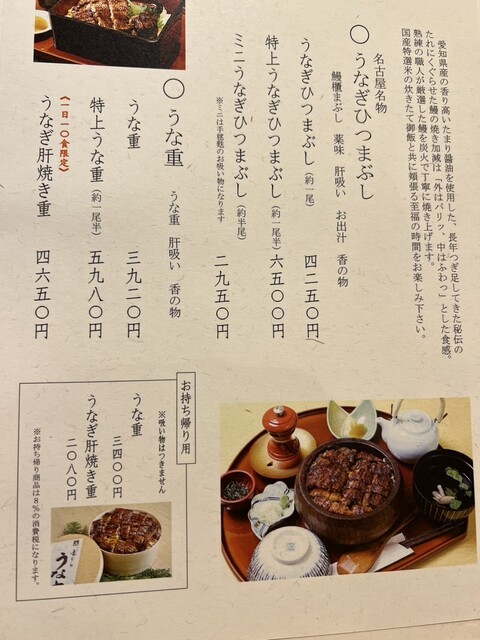 愛知県産の香り高いたまり醤油を使用した、長年つぎ足してきた秘伝の
たれにくぐらせた鰻の焼き加減は「外はパリッ、中はふわっ」とした食感。
熟練の職人が厳選した鰻を炭火で丁寧に焼き上げます。
国産特選米の炊きたて御飯と共に頬張る至福の時間をお楽しみ下さい。
名古屋名物
〇うなぎひつまぶし
鰻櫃まぶし 薬味 肝吸い お出汁 香の物
うなぎひつまぶし(約一尾) 四二五〇円
特上うなぎひつまぶし(約一尾半) 六五〇〇円
ミニうなぎひつまぶし(約半尾) 二九五〇円
※ミニは手毬麩のお吸い物になります
〇うな重 うな重 肝吸い 香の物
うな重 三九二〇円
特上うな重(約一尾半) 五九八〇円
《一日一〇食限定》
うなぎ肝焼き重 四六五〇円
お持ち帰り用
※吸い物はつきません
うな重 三四〇〇円
うなぎ肝焼き重 二〇八〇円
※お持ち帰り商品は8%の消費税になります。